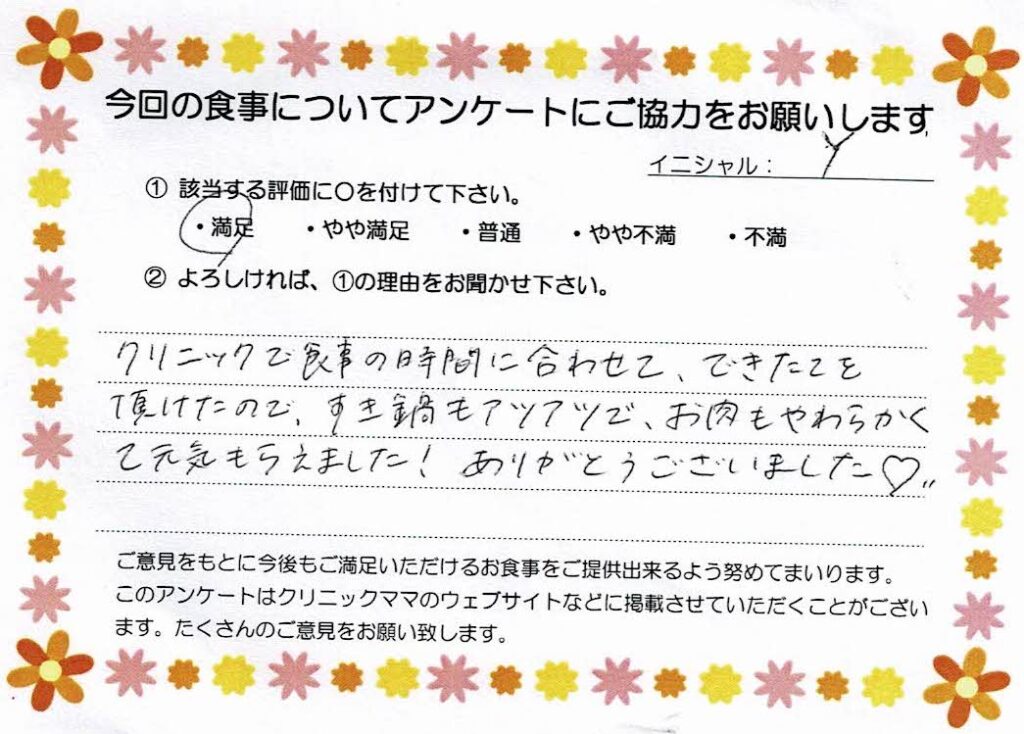 今回の食事についてアンケートにご協力をお願いします
イニシャル： Y
① 該当する評価に〇を付けて下さい。
・満足 ・やや満足 ・普通 ・やや不満 ・不満
② よろしければ、①の理由をお聞かせ下さい。
クリニックで食事の時間に合わせて、できたてを
頂けたので、すき鍋もアツアツで、お肉もやわらかく
て元気もらえました！ ありがとうございました♡〃
ご意見をもとに今後もご満足いただけるお食事をご提供出来るよう努めてまいります。
このアンケートはクリニックママのウェブサイトなどに掲載させていただくことがござい
ます。たくさんのご意見をお願い致します。